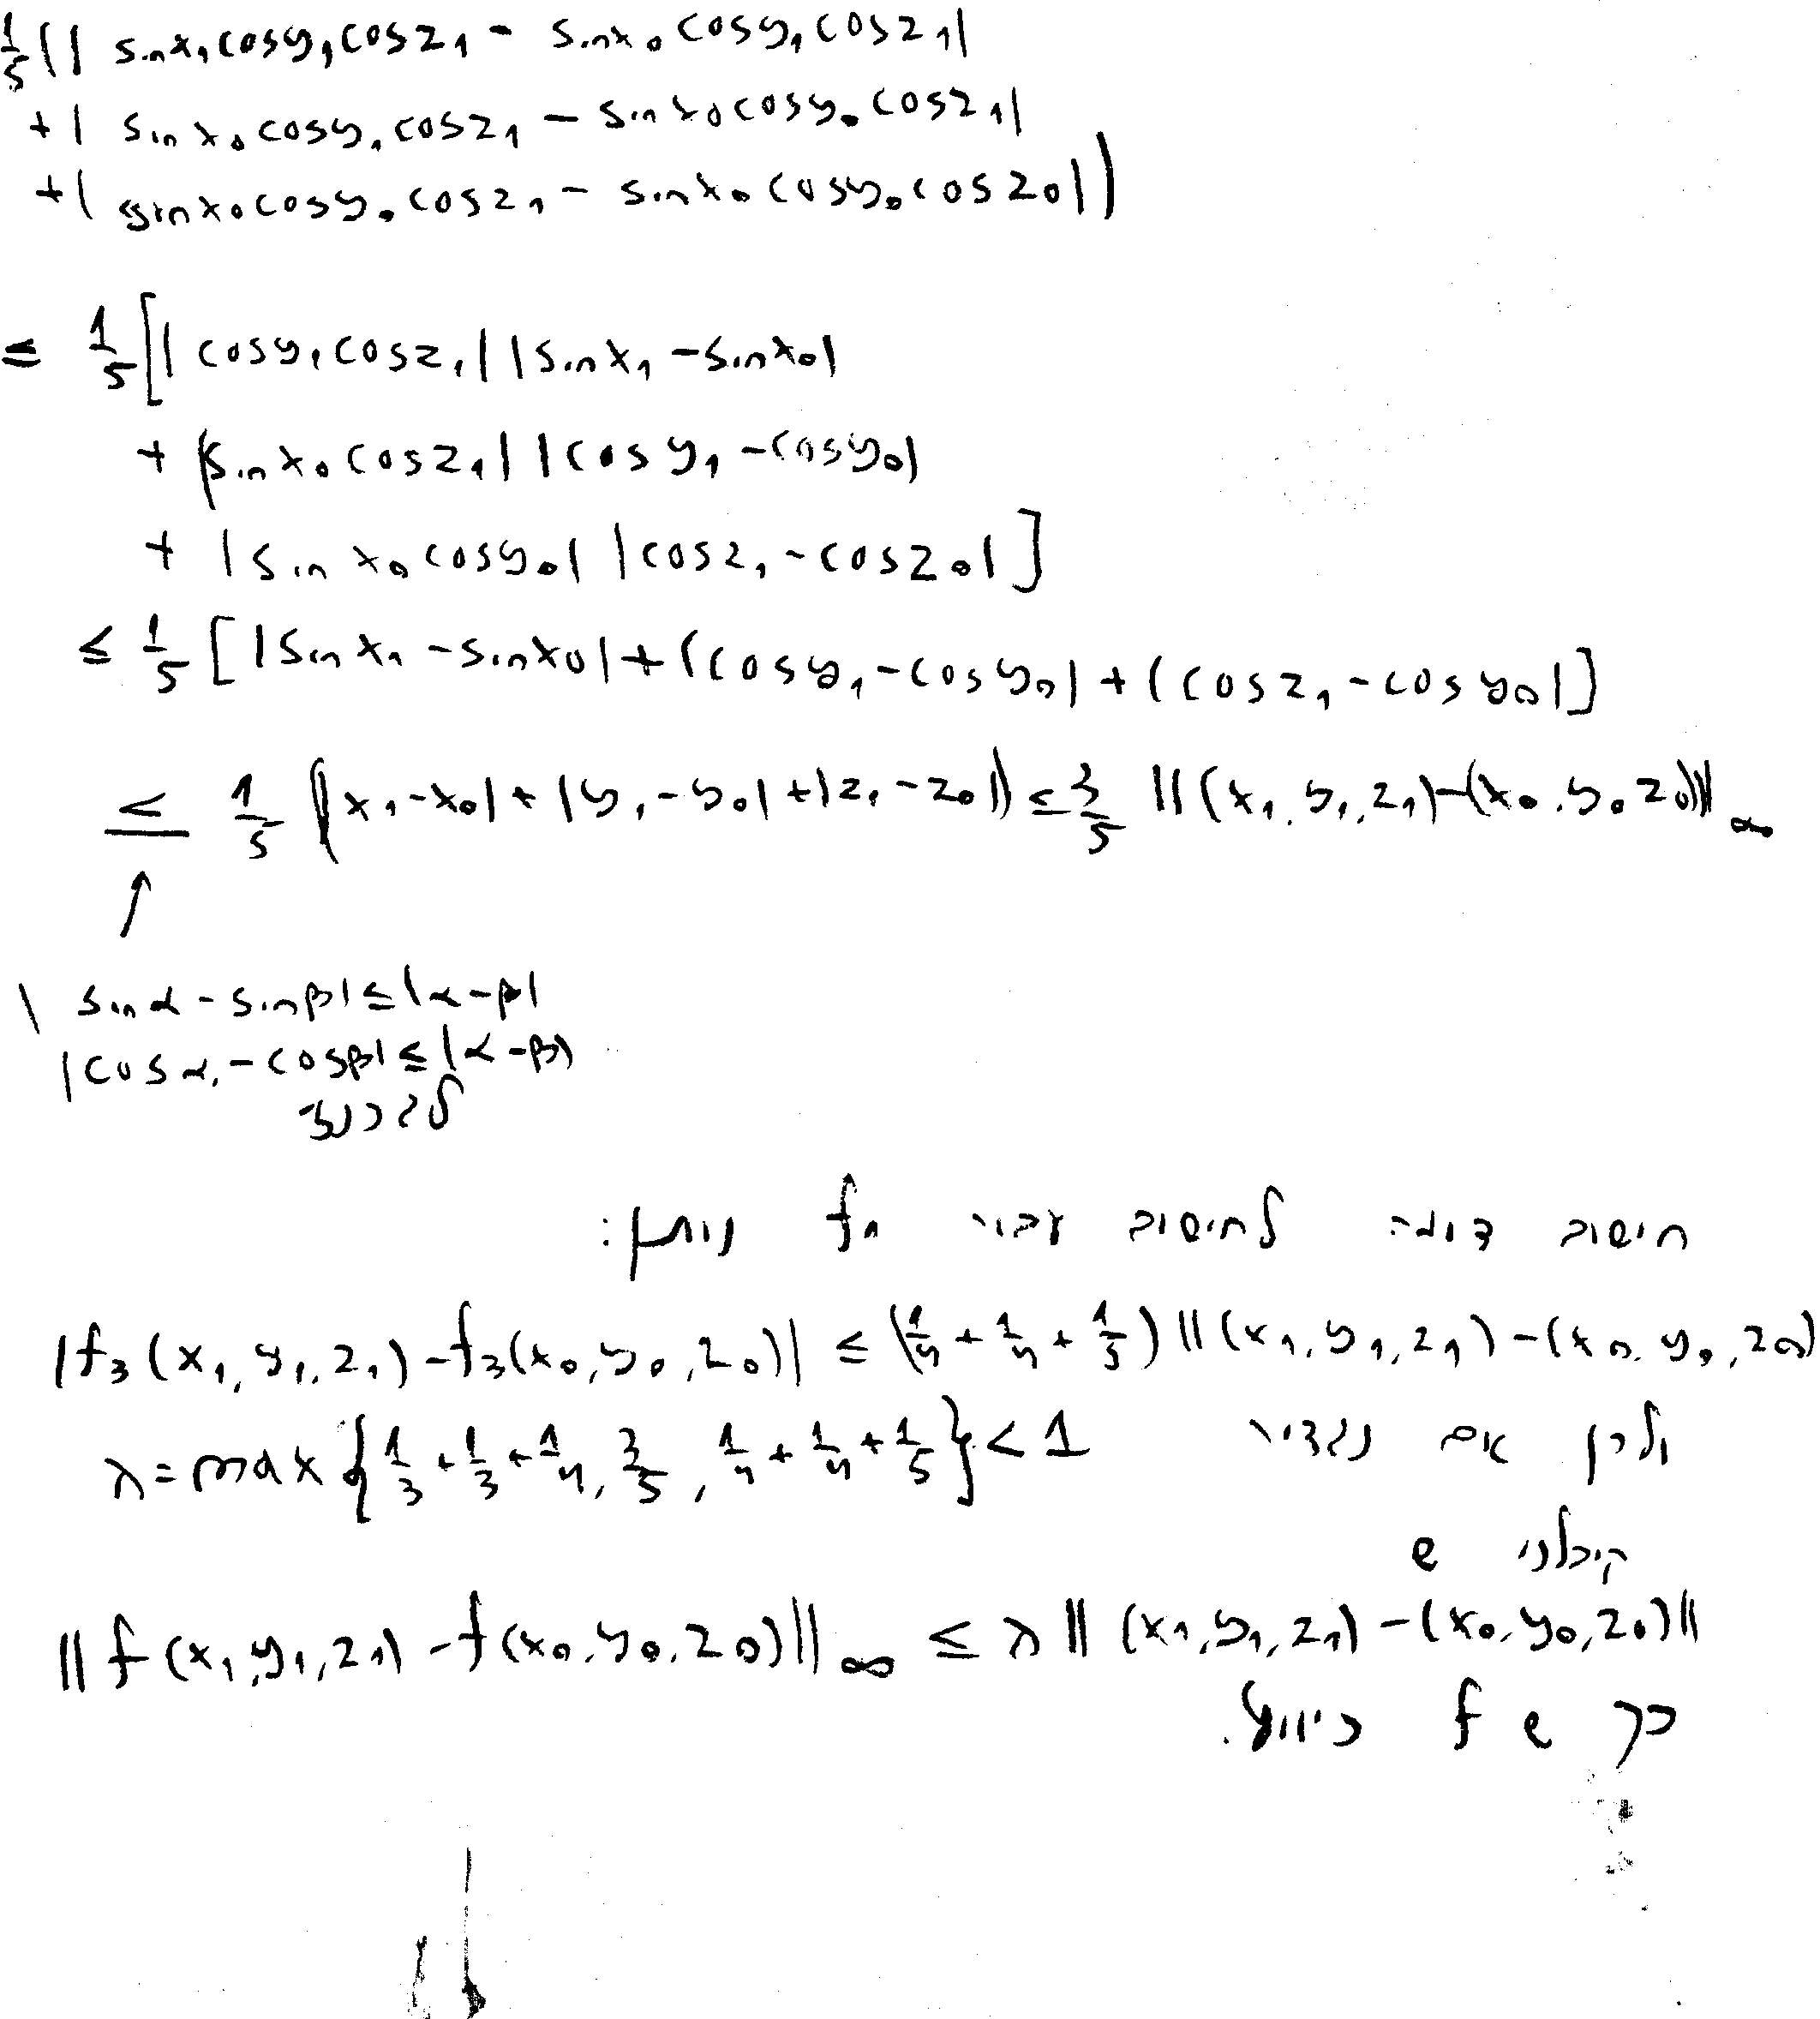 1/5 (| sinx₁cosy₁cosz₁ - sinx₀cosy₁cosz₁|
+| sinx₀cosy₁cosz₁ - sinx₀cosy₀cosz₁|
+| sinx₀cosy₀cosz₁ - sinx₀cosy₀cosz₀|)
= 1/5 [|cosy₁cosz₁| |sinx₁ - sinx₀|
+ |sinx₀cosz₁| |cosy₁ - cosy₀|
+ |sinx₀cosy₀| |cosz₁ - cosz₀|]
≤ 1/5 [|sinx₁ - sinx₀| + |cosy₁ - cosy₀| + |cosz₁ - cosy₀|]
≤ 1/5 (|x₁-x₀| + |y₁-y₀| + |z₁-z₀|) ≤ 3/5 ||(x₁,y₁,z₁)-(x₀,y₀,z₀)||∞
↑
|sinα - sinβ| ≤ |α-β|
|cosα - cosβ| ≤ |α-β|
חישוב דומה לחישוב עבור f₁ נותן:
|f₃(x₁,y₁,z₁) - f₃(x₀,y₀,z₀)| ≤ (1/4 + 1/4 + 1/5) ||(x₁,y₁,z₁) - (x₀,y₀,z₀)
ולכן אם נגדיר λ = max{1/3 + 1/3 + 1/4, 3/5, 1/4 + 1/4 + 1/5} < 1
קיבלנו ש
||f(x₁,y₁,z₁) - f(x₀,y₀,z₀)||∞ ≤ λ||(x₁,y₁,z₁) - (x₀,y₀,z₀)||
כך ש f כיווץ.